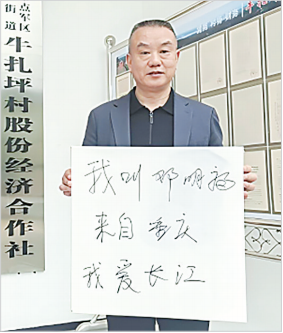 点军区
街道
牛扎坪村股份经济合作社
我叫邓明福
来自重庆
我爱长江